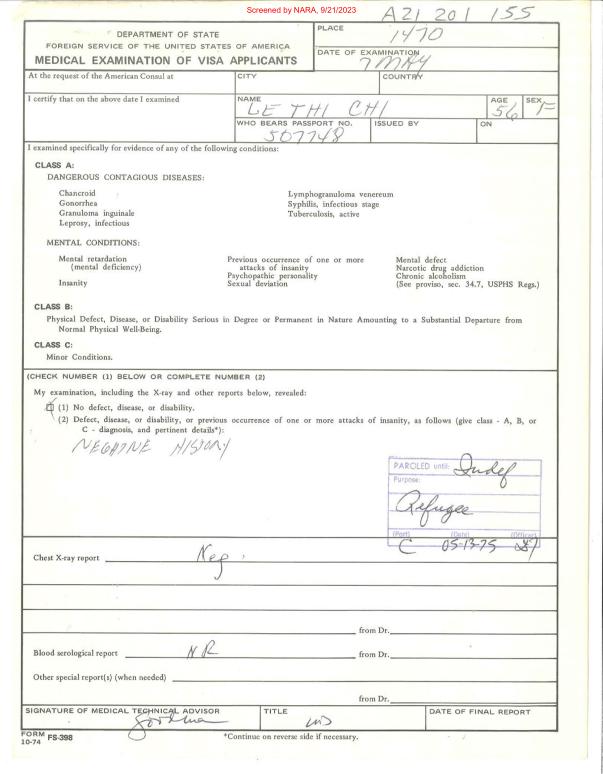 Screened by NARA, 9/21/2023
A21 201 155
DEPARTMENT OF STATE
FOREIGN SERVICE OF THE UNITED STATES OF AMERICA
MEDICAL EXAMINATION OF VISA APPLICANTS
PLACE
1470
DATE OF EXAMINATION
7 MAY
At the request of the American Consul at
CITY
COUNTRY
I certify that on the above date I examined
NAME
LE THI CHI
AGE
56
SEX
F
WHO BEARS PASSPORT NO.
507748
ISSUED BY
ON
I examined specifically for evidence of any of the following conditions:
CLASS A:
DANGEROUS CONTAGIOUS DISEASES:
Chancroid
Gonorrhea
Granuloma inguinale
Leprosy, infectious
Lymphogranuloma venereum
Syphilis, infectious stage
Tuberculosis, active
MENTAL CONDITIONS:
Mental retardation
(mental deficiency)
Insanity
Previous occurrence of one or more
attacks of insanity
Psychopathic personality
Sexual deviation
Mental defect
Narcotic drug addiction
Chronic alcoholism
(See proviso, sec. 34.7, USPHS Regs.)
CLASS B:
Physical Defect, Disease, or Disability Serious in Degree or Permanent in Nature Amounting to a Substantial Departure from
Normal Physical Well-Being.
CLASS C:
Minor Conditions.
(CHECK NUMBER (1) BELOW OR COMPLETE NUMBER (2)
My examination, including the X-ray and other reports below, revealed:
(1) No defect, disease, or disability.
(2) Defect, disease, or disability, or previous occurrence of one or more attacks of insanity, as follows (give class - A, B, or
C - diagnosis, and pertinent details*):
NEGATIVE HISTORY
PAROLED until: Indef
Purpose:
Refugee
(Port) (Date) (Officer)
C 05-13-75
Chest X-ray report Neg
from Dr.
Blood serological report NR
from Dr.
Other special report(s) (when needed)
from Dr.
SIGNATURE OF MEDICAL TECHNICAL ADVISOR
TITLE
MD
DATE OF FINAL REPORT
FORM FS-398
10-74
*Continue on reverse side if necessary.